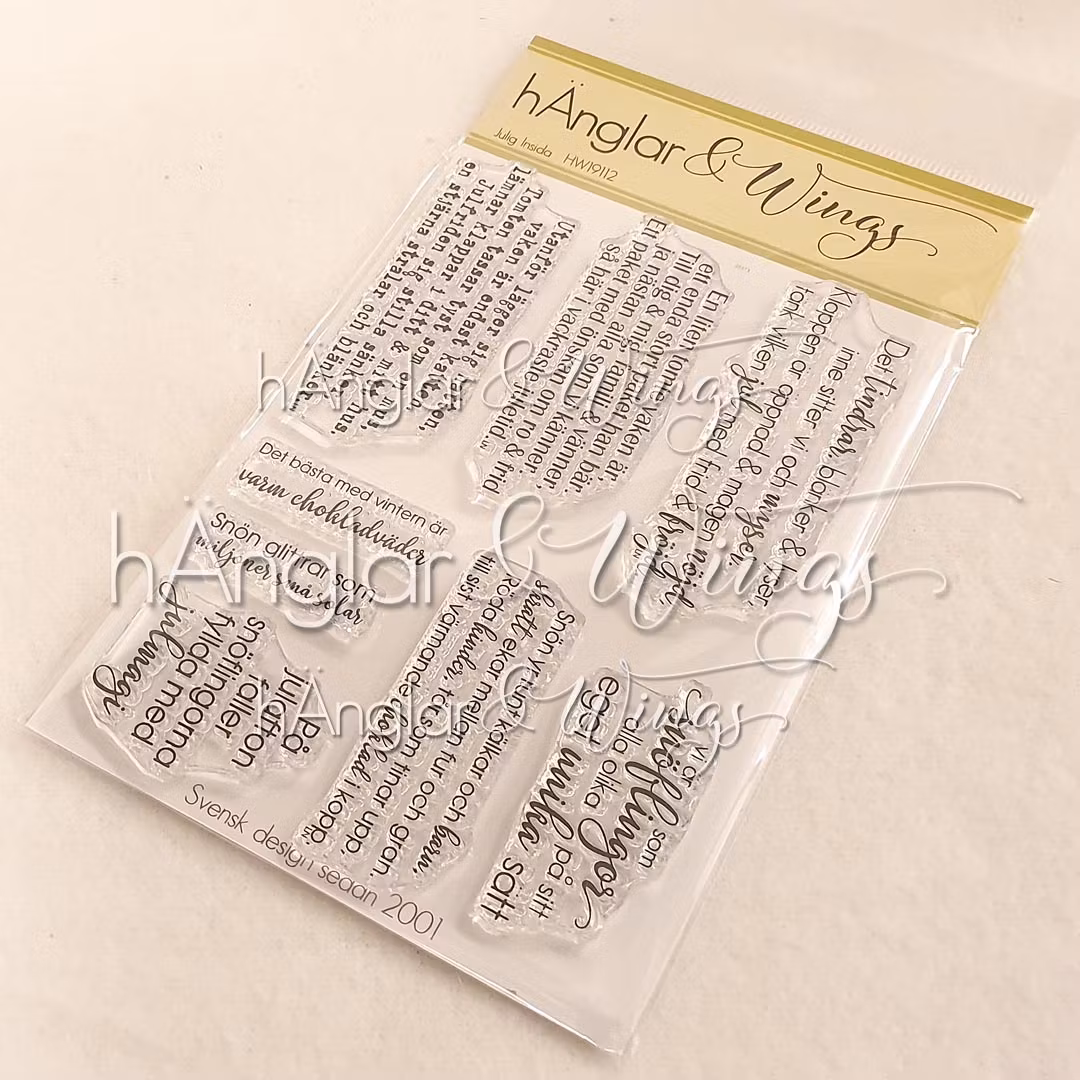 hÄnglar & Wings
Julig Insida HW19112
Utanför lägger sig
vaken är endast katten.
Tomten tassar tyst som en mus
lämnar klappar i ditt &
Julfriden sig stilla sänker
en stjärna strålar och blänker
En liten tomte vaken är,
ett enda stort paket han bär.
Till dig & mig, familj & vänner,
ja nästan alla som vi känner.
Ett paket med önskan om ro & frid
så här i vackraste juletid...
Det tindrar, blänker & lyser,
inne sitter vi och myser.
Klappen är öppnad & magen nöjd,
tänk vilken jul med frid & fröjd.
Det bästa med vintern är
varm chokladväder
Snön glittrar som
miljoner små solar
På
julafton
faller
snöflingorna
fyllda med
Julmagi
Snön yr runt kälkar och barn,
skratt ekar mellan fur och gran.
Röda kinder, tår som tinar upp,
till sist värmande choklad i kopp.
Så vi är som
snöflingor
alla olika på sitt
eget unika sätt
Svensk design sedan 2001
hÄnglar & Wings
hÄnglar & Wings
hÄnglar & Wings